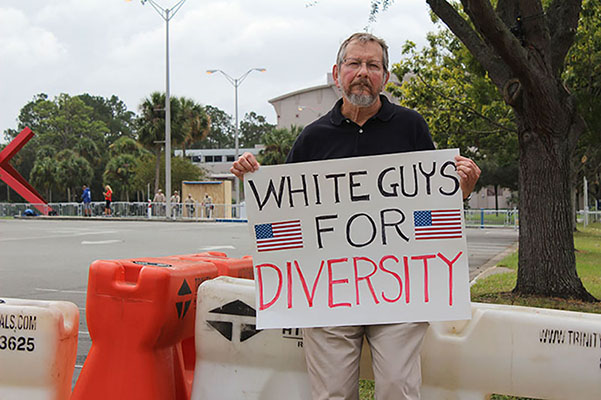 WHITE GUYS
FOR
DIVERSITY
ALS.COM
3625
WWW.TRINITY